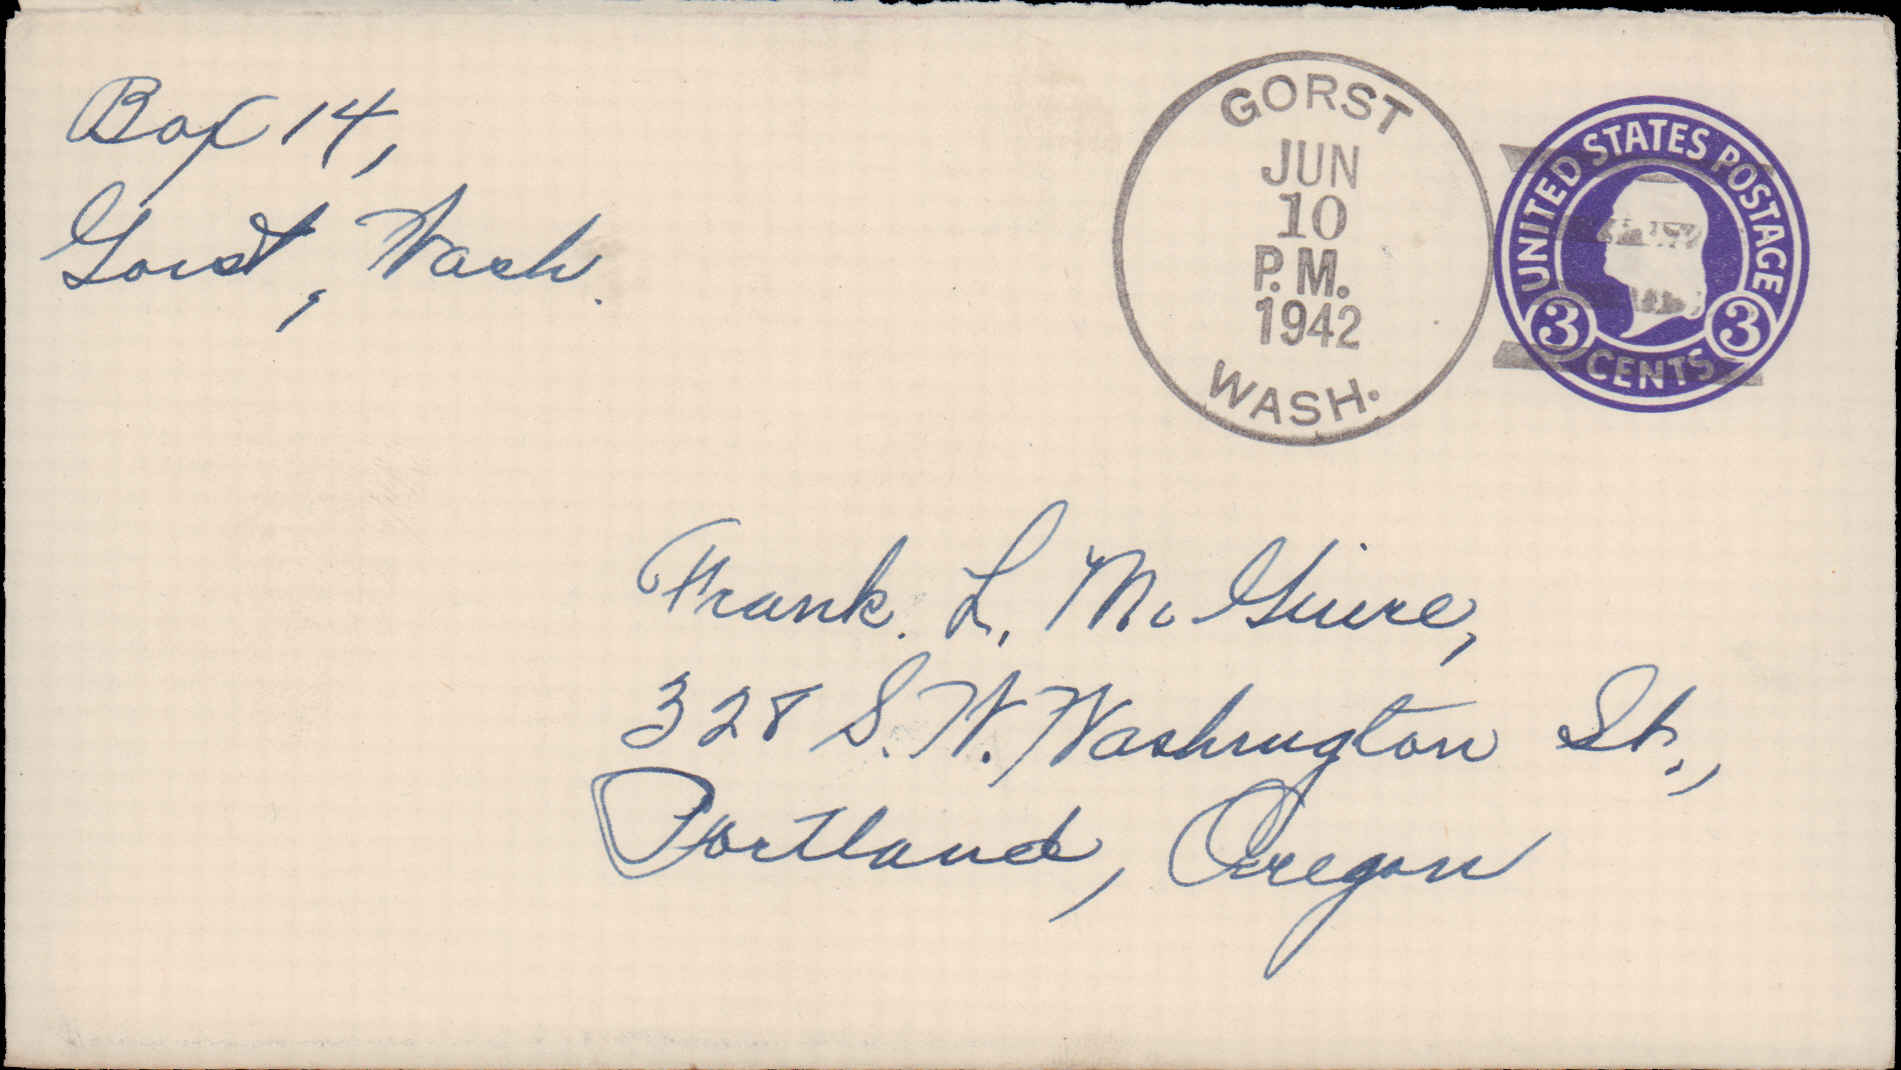 Box 14,
Gorst, Wash.
GORST
JUN
10
P.M.
1942
WASH.
UNITED STATES POSTAGE
3 CENTS 3
Frank. L. Mc Guire,
328 S.W. Washington St.,
Portland, Oregon